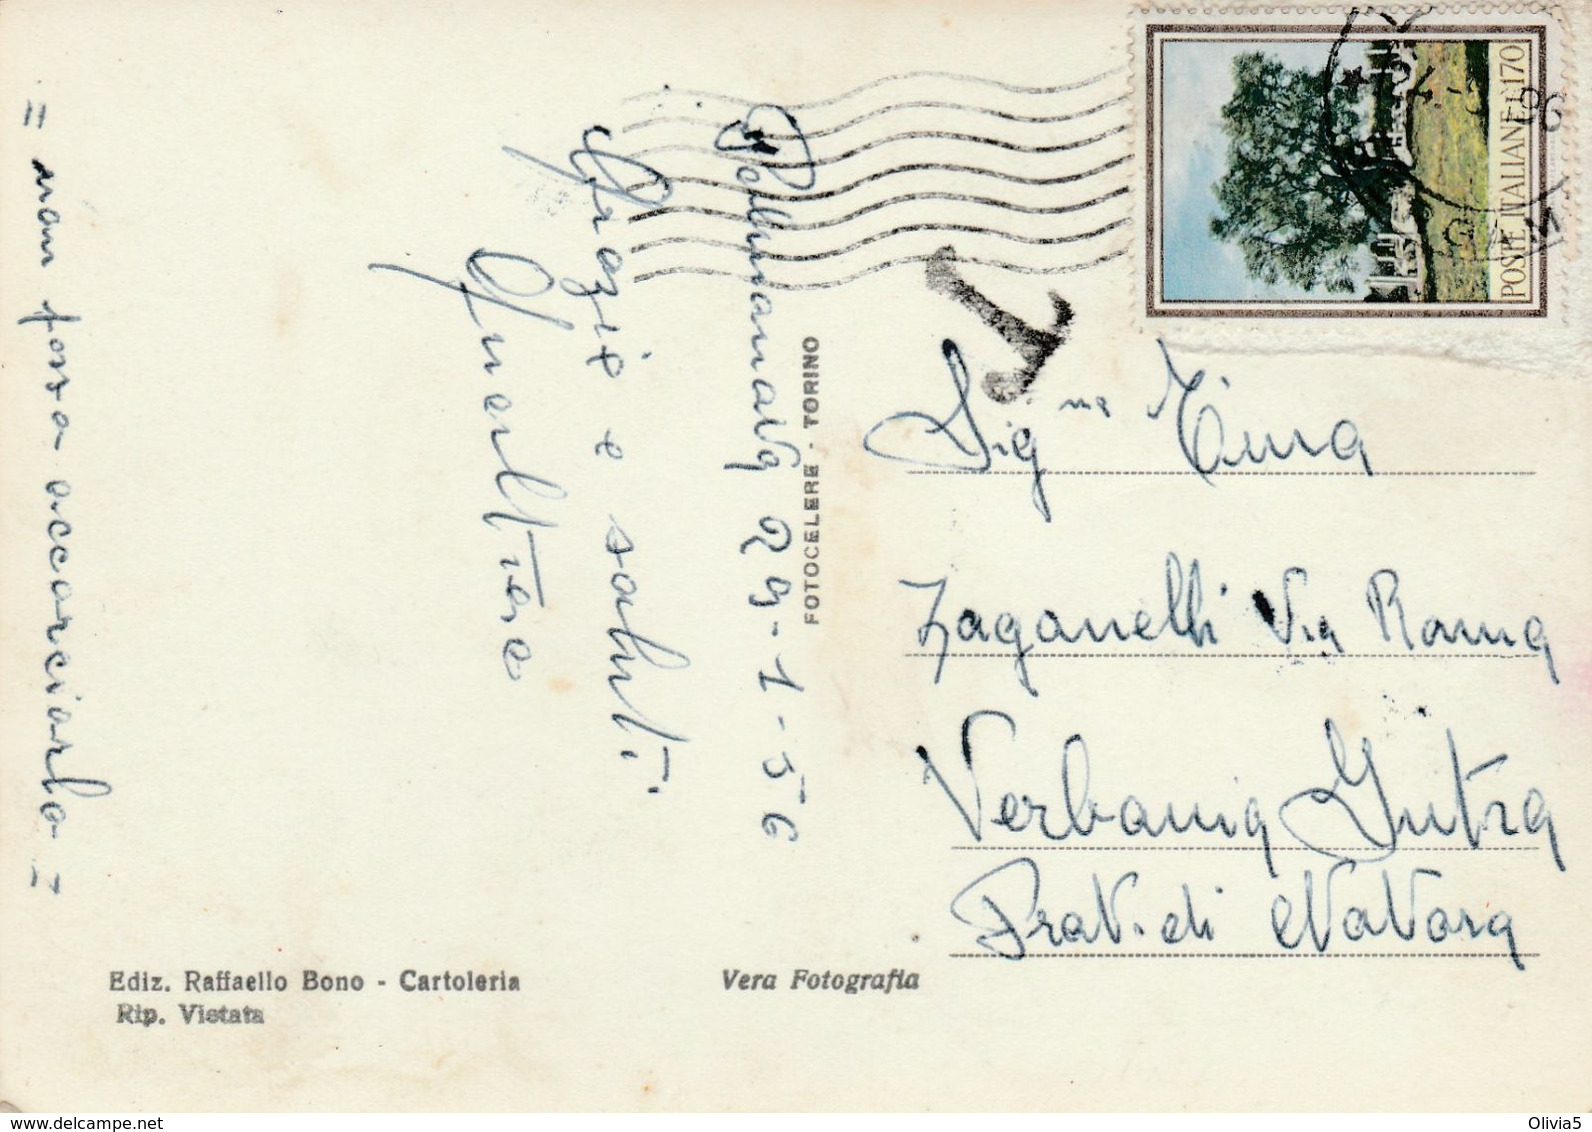 = non possa accorciarlo =
Grazie e saluti
29-1-56
FOTOCELERE - TORINO
POSTE ITALIANE L. 170
T
Sig.na Tina
Zaganelli Via Roma
Verbania Intra
Prov. di Novara
Ediz. Raffaello Bono - Cartoleria
Rip. Vietata
Vera Fotografia
www.delcampe.net
Olivia5